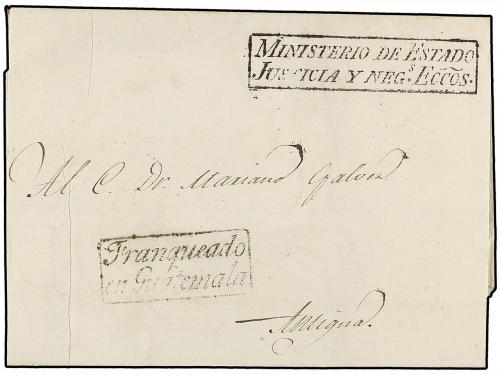 MINISTERIO DE ESTADO
JUSTICIA Y NEG.S ECCŌS.
Al C. Dr. Mariano Galvez
Franqueado
en Guatemala
Antigua.